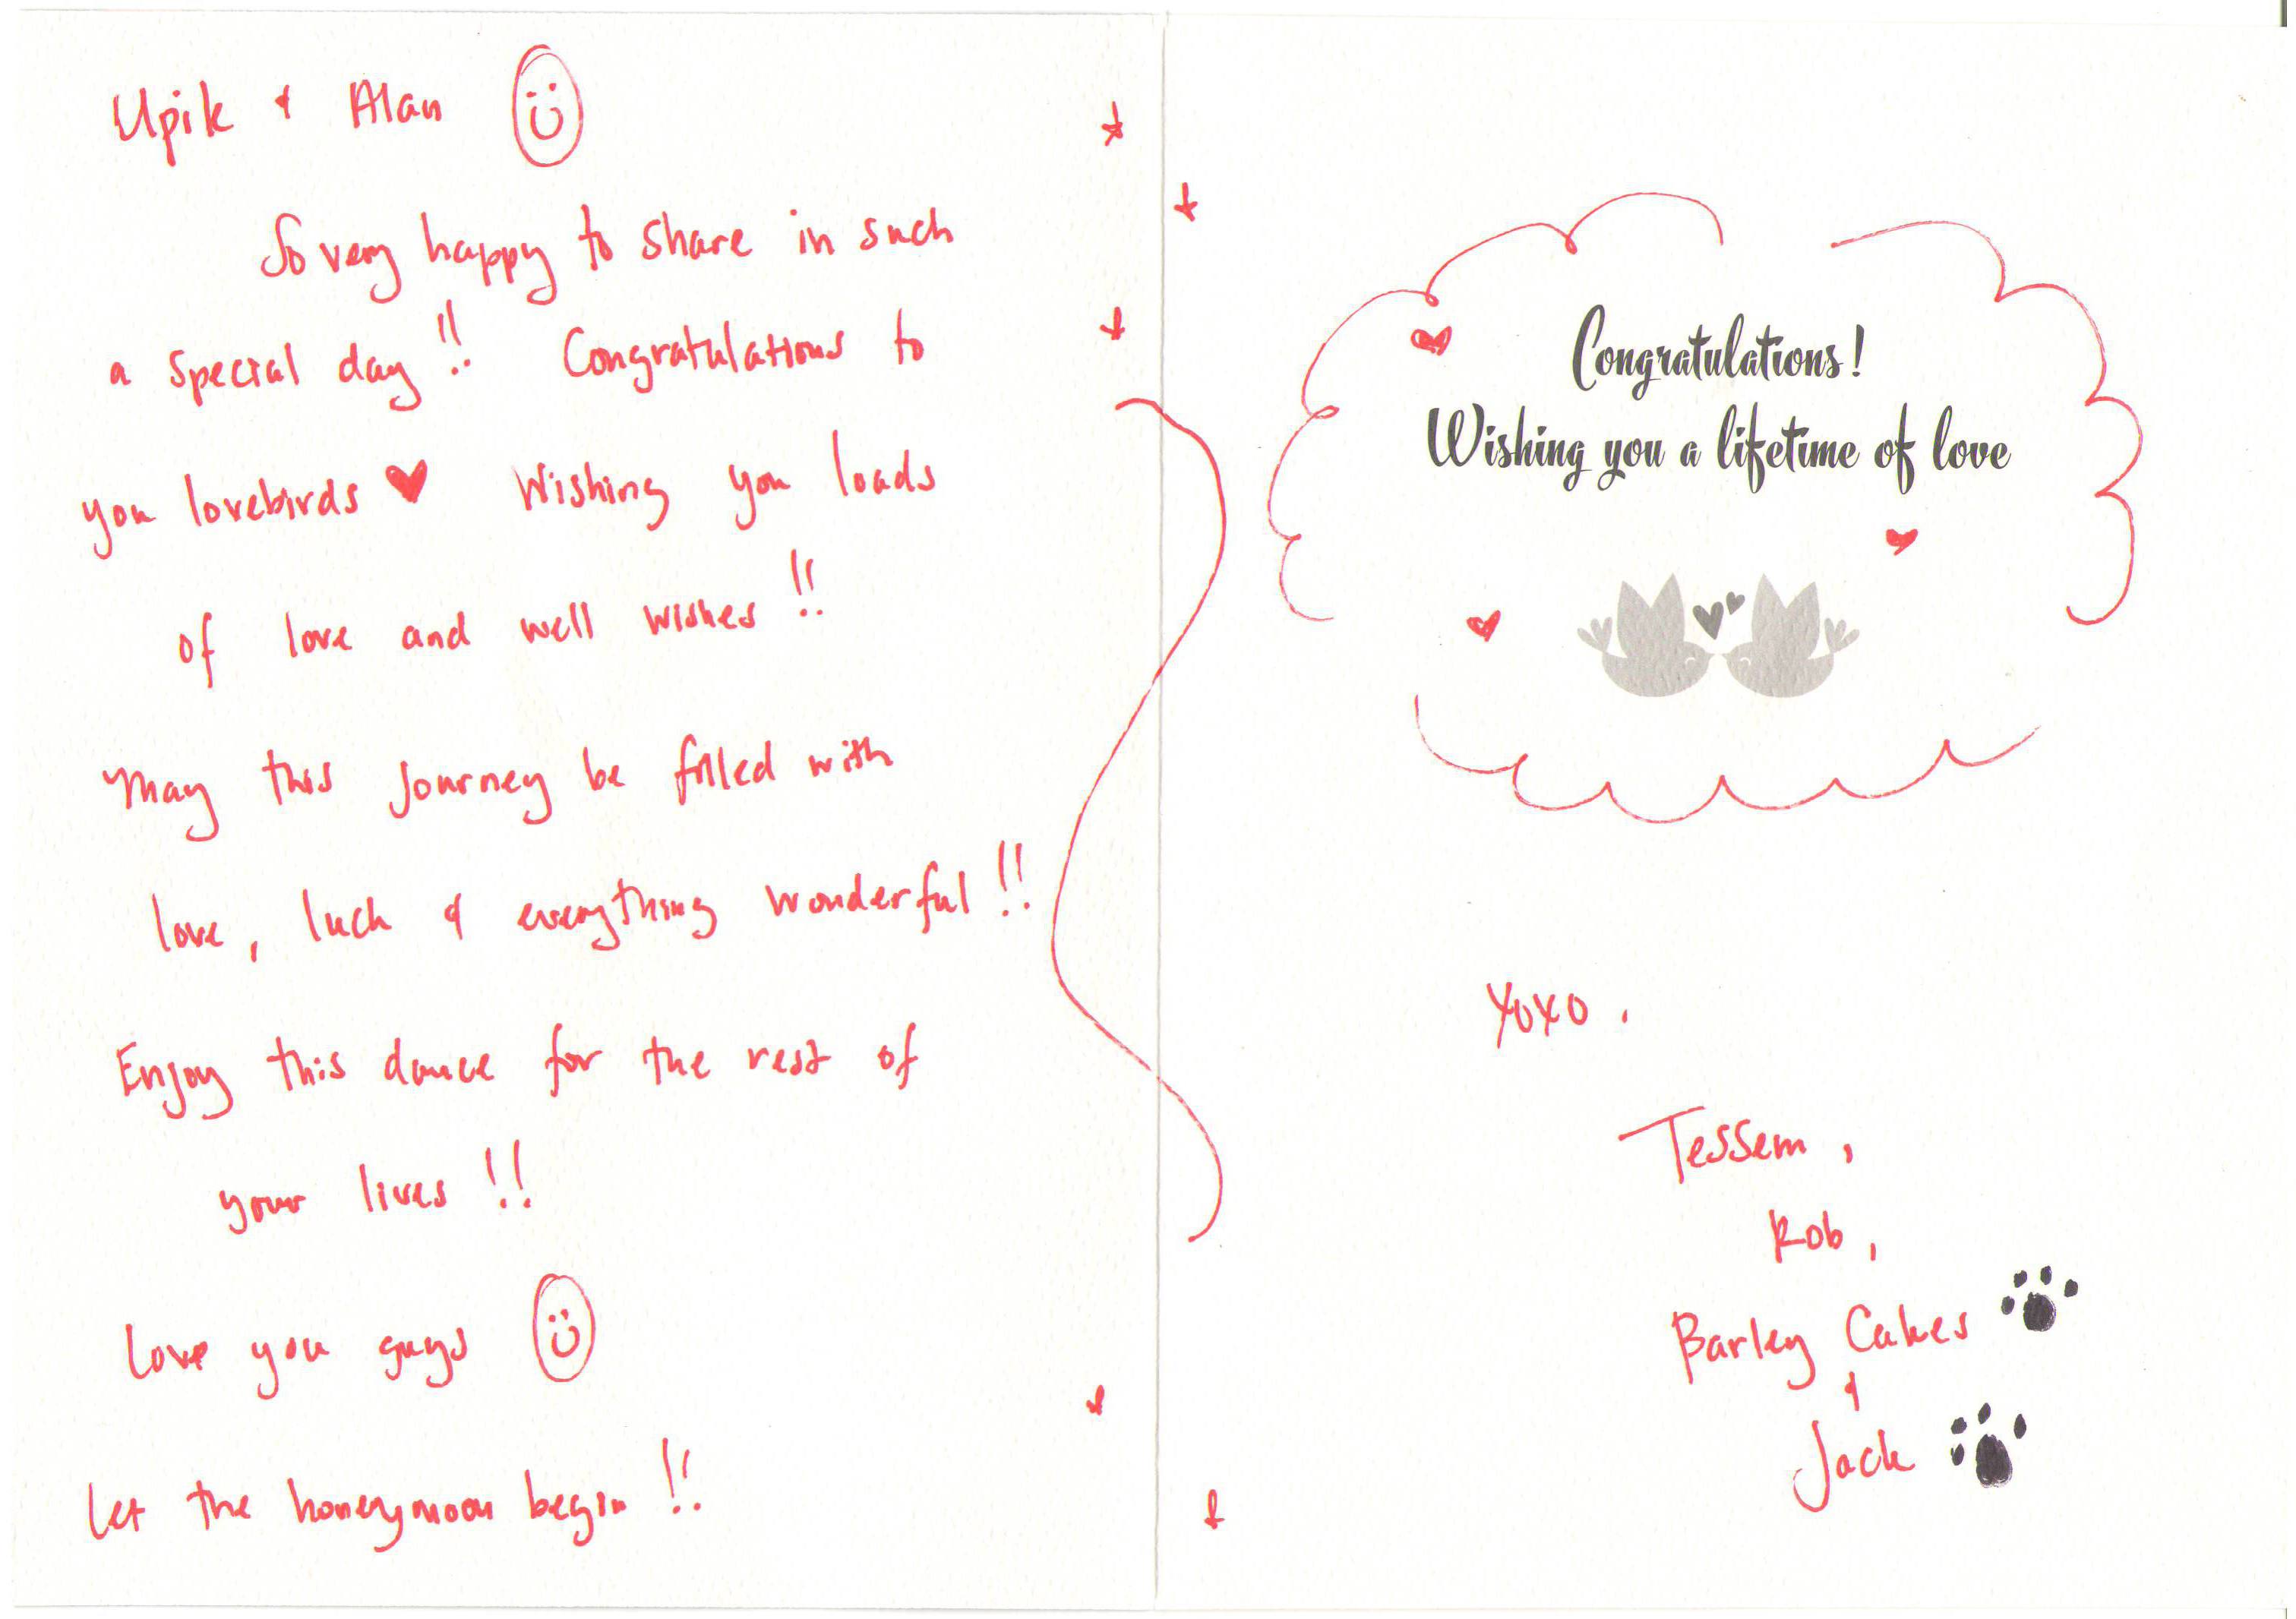 Upik & Alan
So very happy to share in such
a special day!! Congratulations to
you lovebirds ♥ Wishing you loads
of love and well wishes!!
May this journey be filled with
love, luck & everything wonderful!!
Enjoy this dance for the rest of
your lives!!
Love you guys
Let the honeymoon begin!!
Congratulations!
Wishing you a lifetime of love
XOXO.
Tessem,
Rob,
Barley Cakes
&
Jack